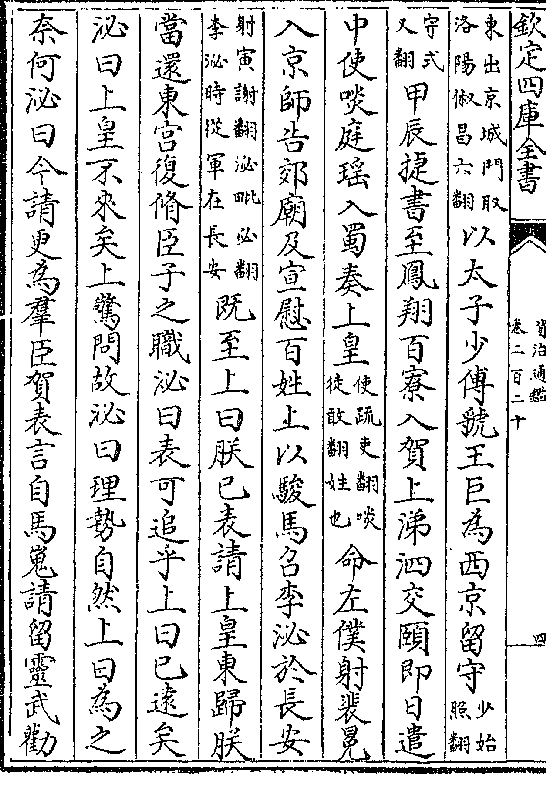 欽定四庫全書
資治通鑑
卷二百二十
四
東出京城門取
洛陽俶昌六翻
以太子少傅虢王巨為西京留守
少始
照翻
守式
又翻
甲辰捷書至鳳翔百寮入賀上涕泗交頤即日遣
中使啖庭瑶入蜀奏上皇
使疏吏翻啖
徒敢翻姓也
命左僕射裴冕
入京師告郊廟及宣慰百姓上以駿馬召李泌於長安
射寅謝翻泌毗必翻
李泌時從軍在長安
既至上曰朕已表請上皇東歸朕
當還東宮復脩臣子之職泌曰表可追乎上曰已逺矣
泌曰上皇不來矣上驚問故泌曰理勢自然上曰為之
奈何泌曰今請更為羣臣賀表言自馬嵬請留靈武勸